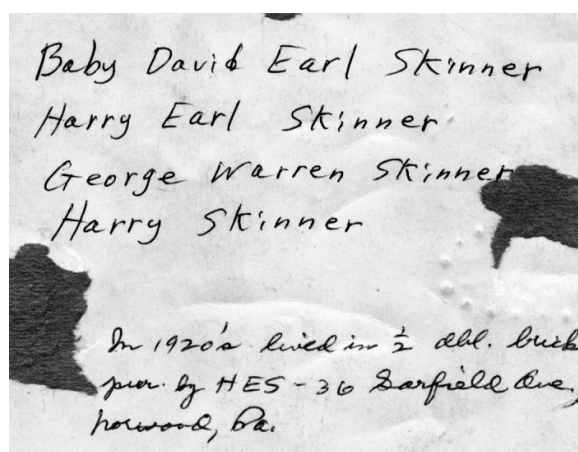 Baby David Earl Skinner
Harry Earl Skinner
George Warren Skinner
Harry Skinner
In 1920's lived in ½ dbl. brick
pur. by HES - 36 Garfield Ave,
Norwood, Pa.